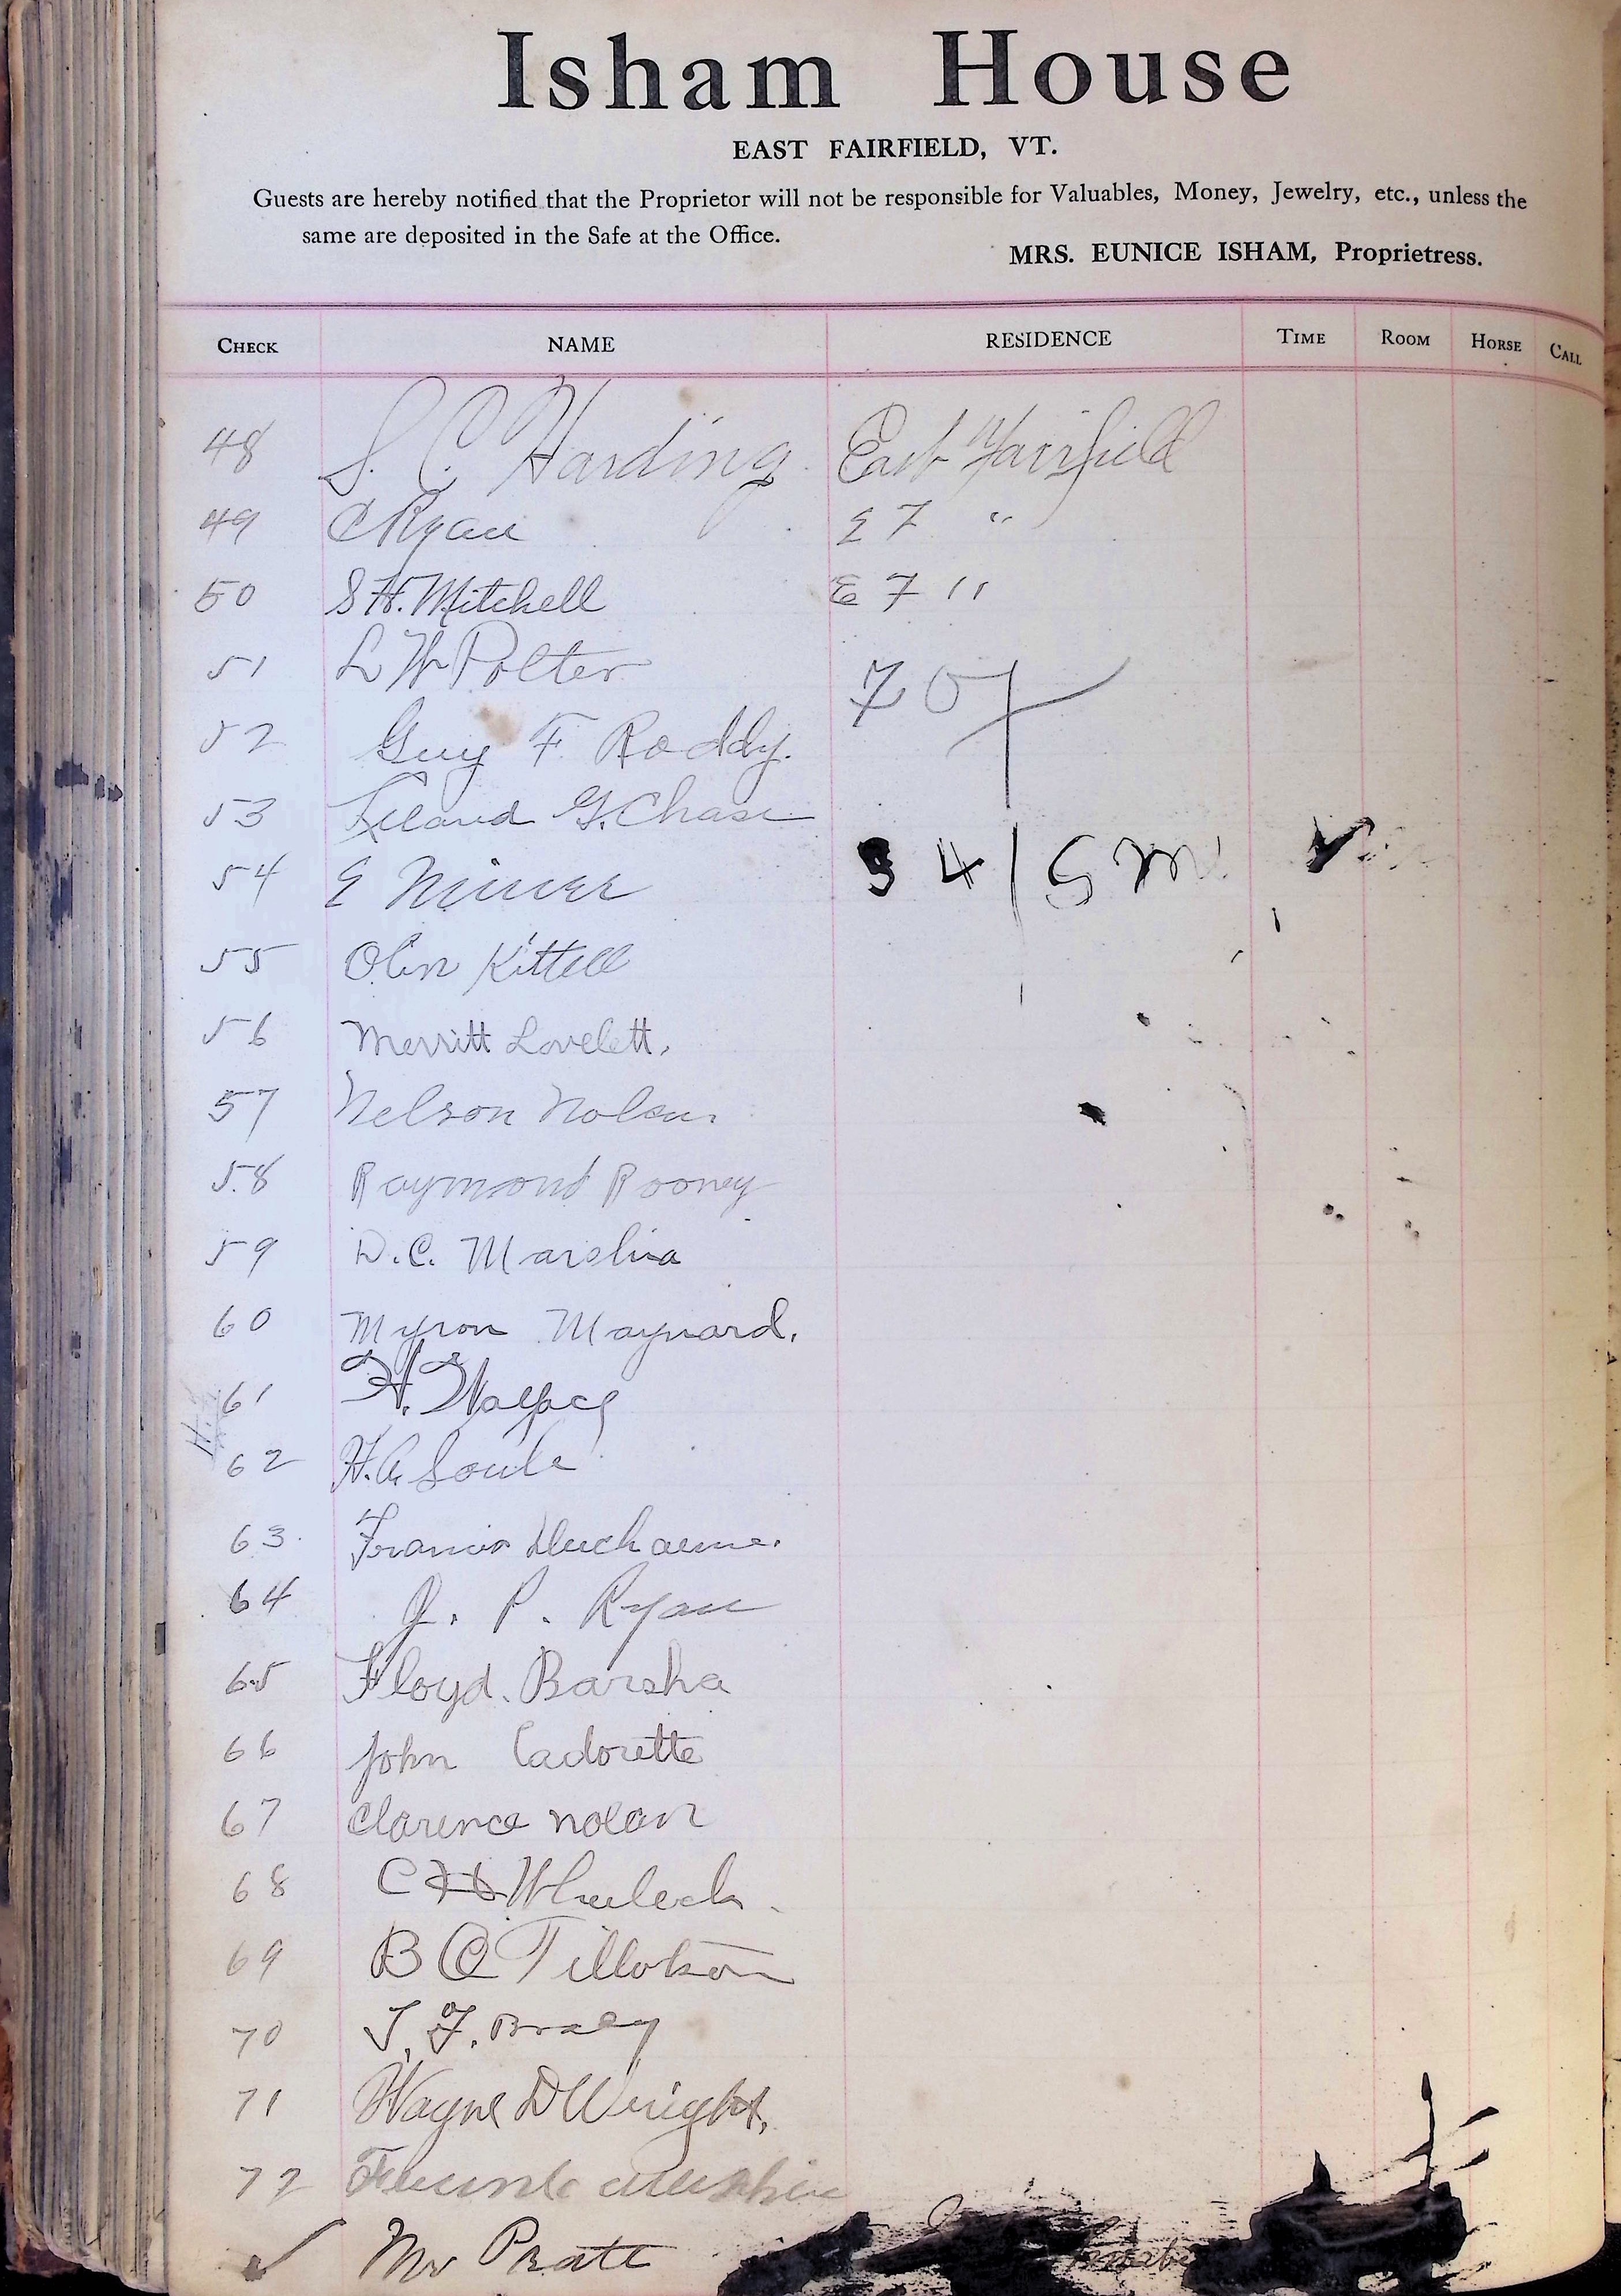 Isham House
EAST FAIRFIELD, VT.
Guests are hereby notified that the Proprietor will not be responsible for Valuables, Money, Jewelry, etc., unless the
same are deposited in the Safe at the Office.
MRS. EUNICE ISHAM, Proprietress.
CHECK NAME RESIDENCE TIME ROOM HORSE CALL
48 S. C. Harding East Fairfield
49 C Ryan E F "
50 S H. Mitchell E F "
51 L W Potter
52 Guy F. Roddy.
53 Leland G. Chase
54 E Miner
55 Olin Kittell
56 Merritt Lovelett.
57 Nelson Nolan.
58 Raymond Rooney
59 D. C. Marslia
60 Myron Maynard.
61 H.
62 H. A. Soule
63. Francis Ducharme.
64 J. P. Ryan
65 Floyd. Barsha
66 John Cadorette
67 Clarence nolan
68 C Wheelock.
69 B C Tillotson
70 J. F.
71 Wayne D Wright.
72
✓ Mr Pratt